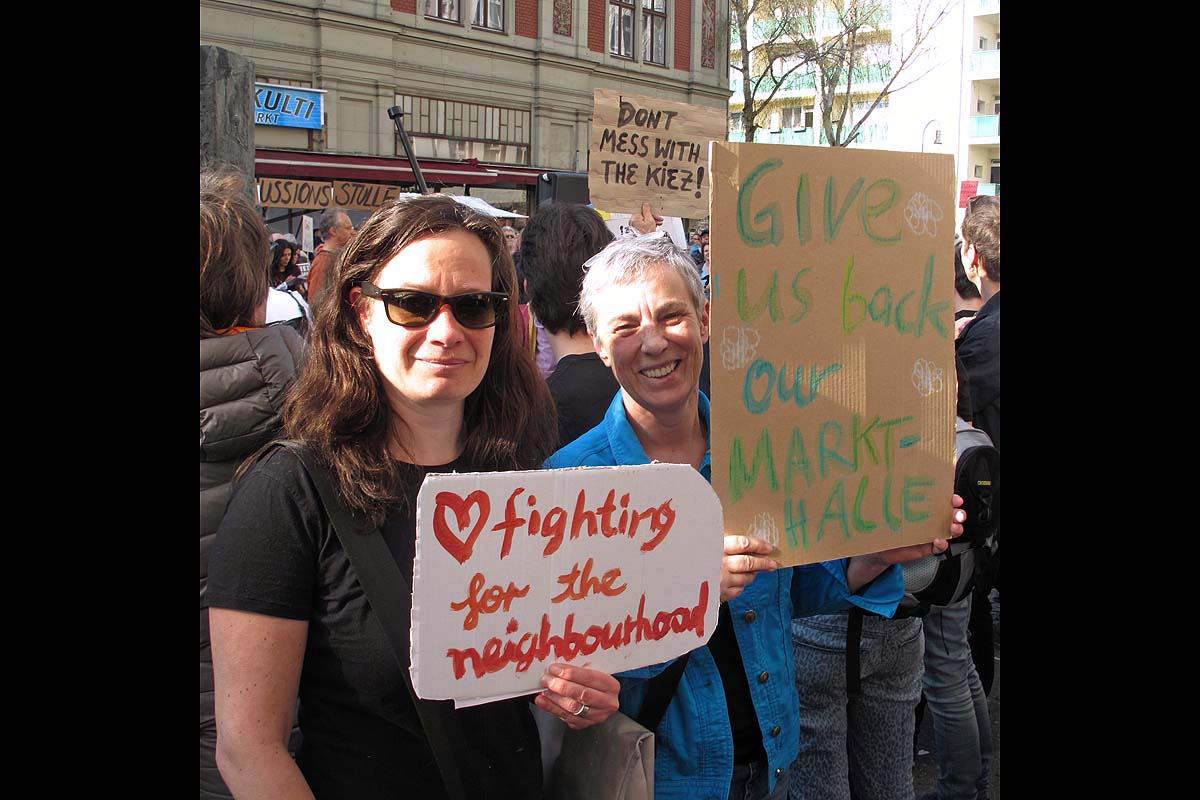 KULTI
RKT
USSIONS STULLE
DONT
MESS WITH
THE KIEZ!
Give
us back
our
MARKT-
HALLE
♥ fighting
for the
neighbourhood